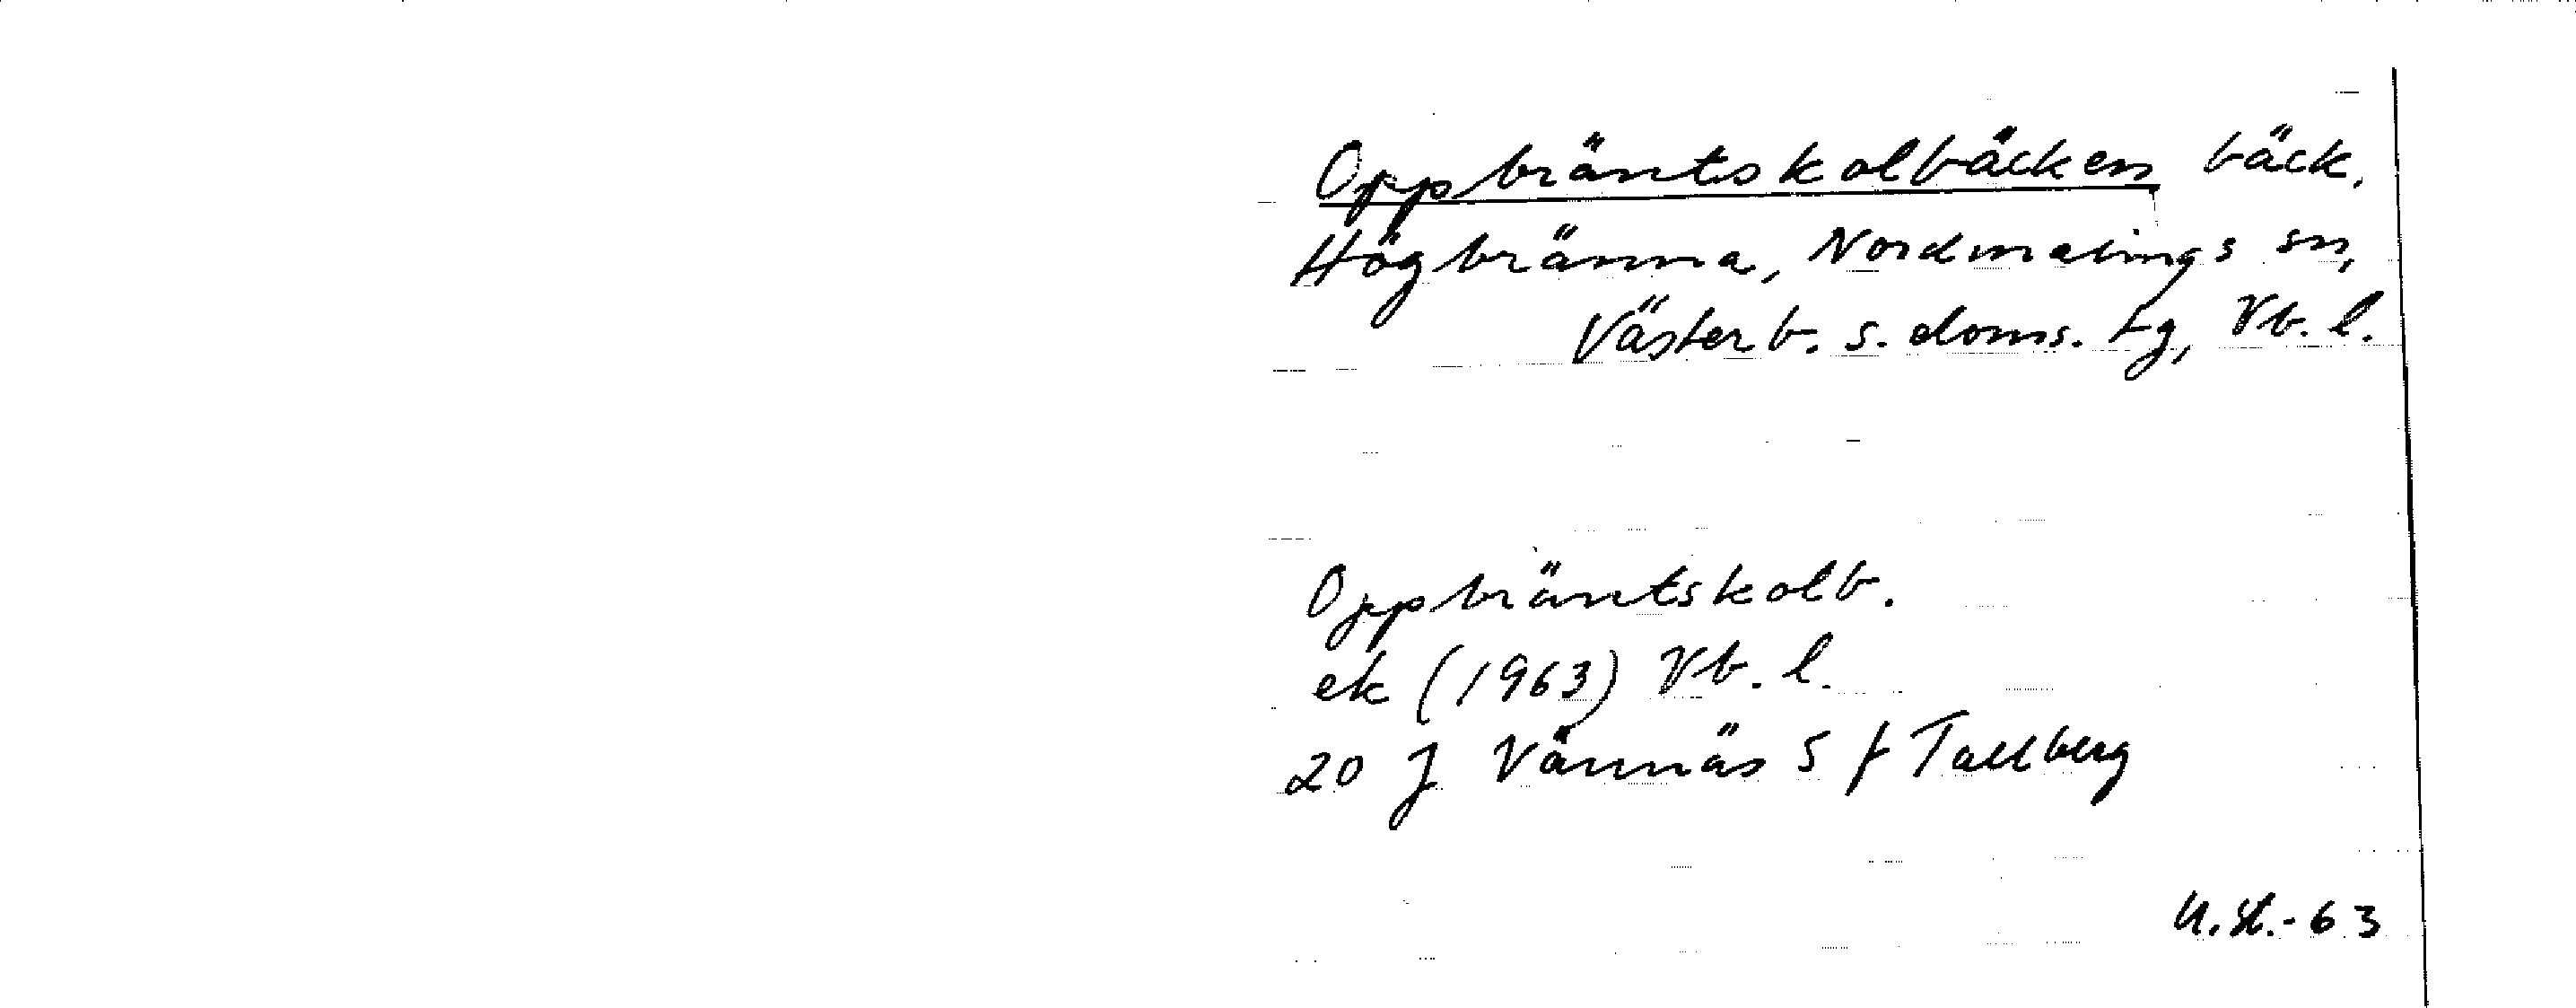 Oppbräntskalbäcken bäck.
Högbränna, Nordmalings sn,
Västerb. s. doms. tg, Vb. l.
Oppbräntskalb.
ek (1963) Vb. l.
20 J Vännäs S f Tallberg
-63